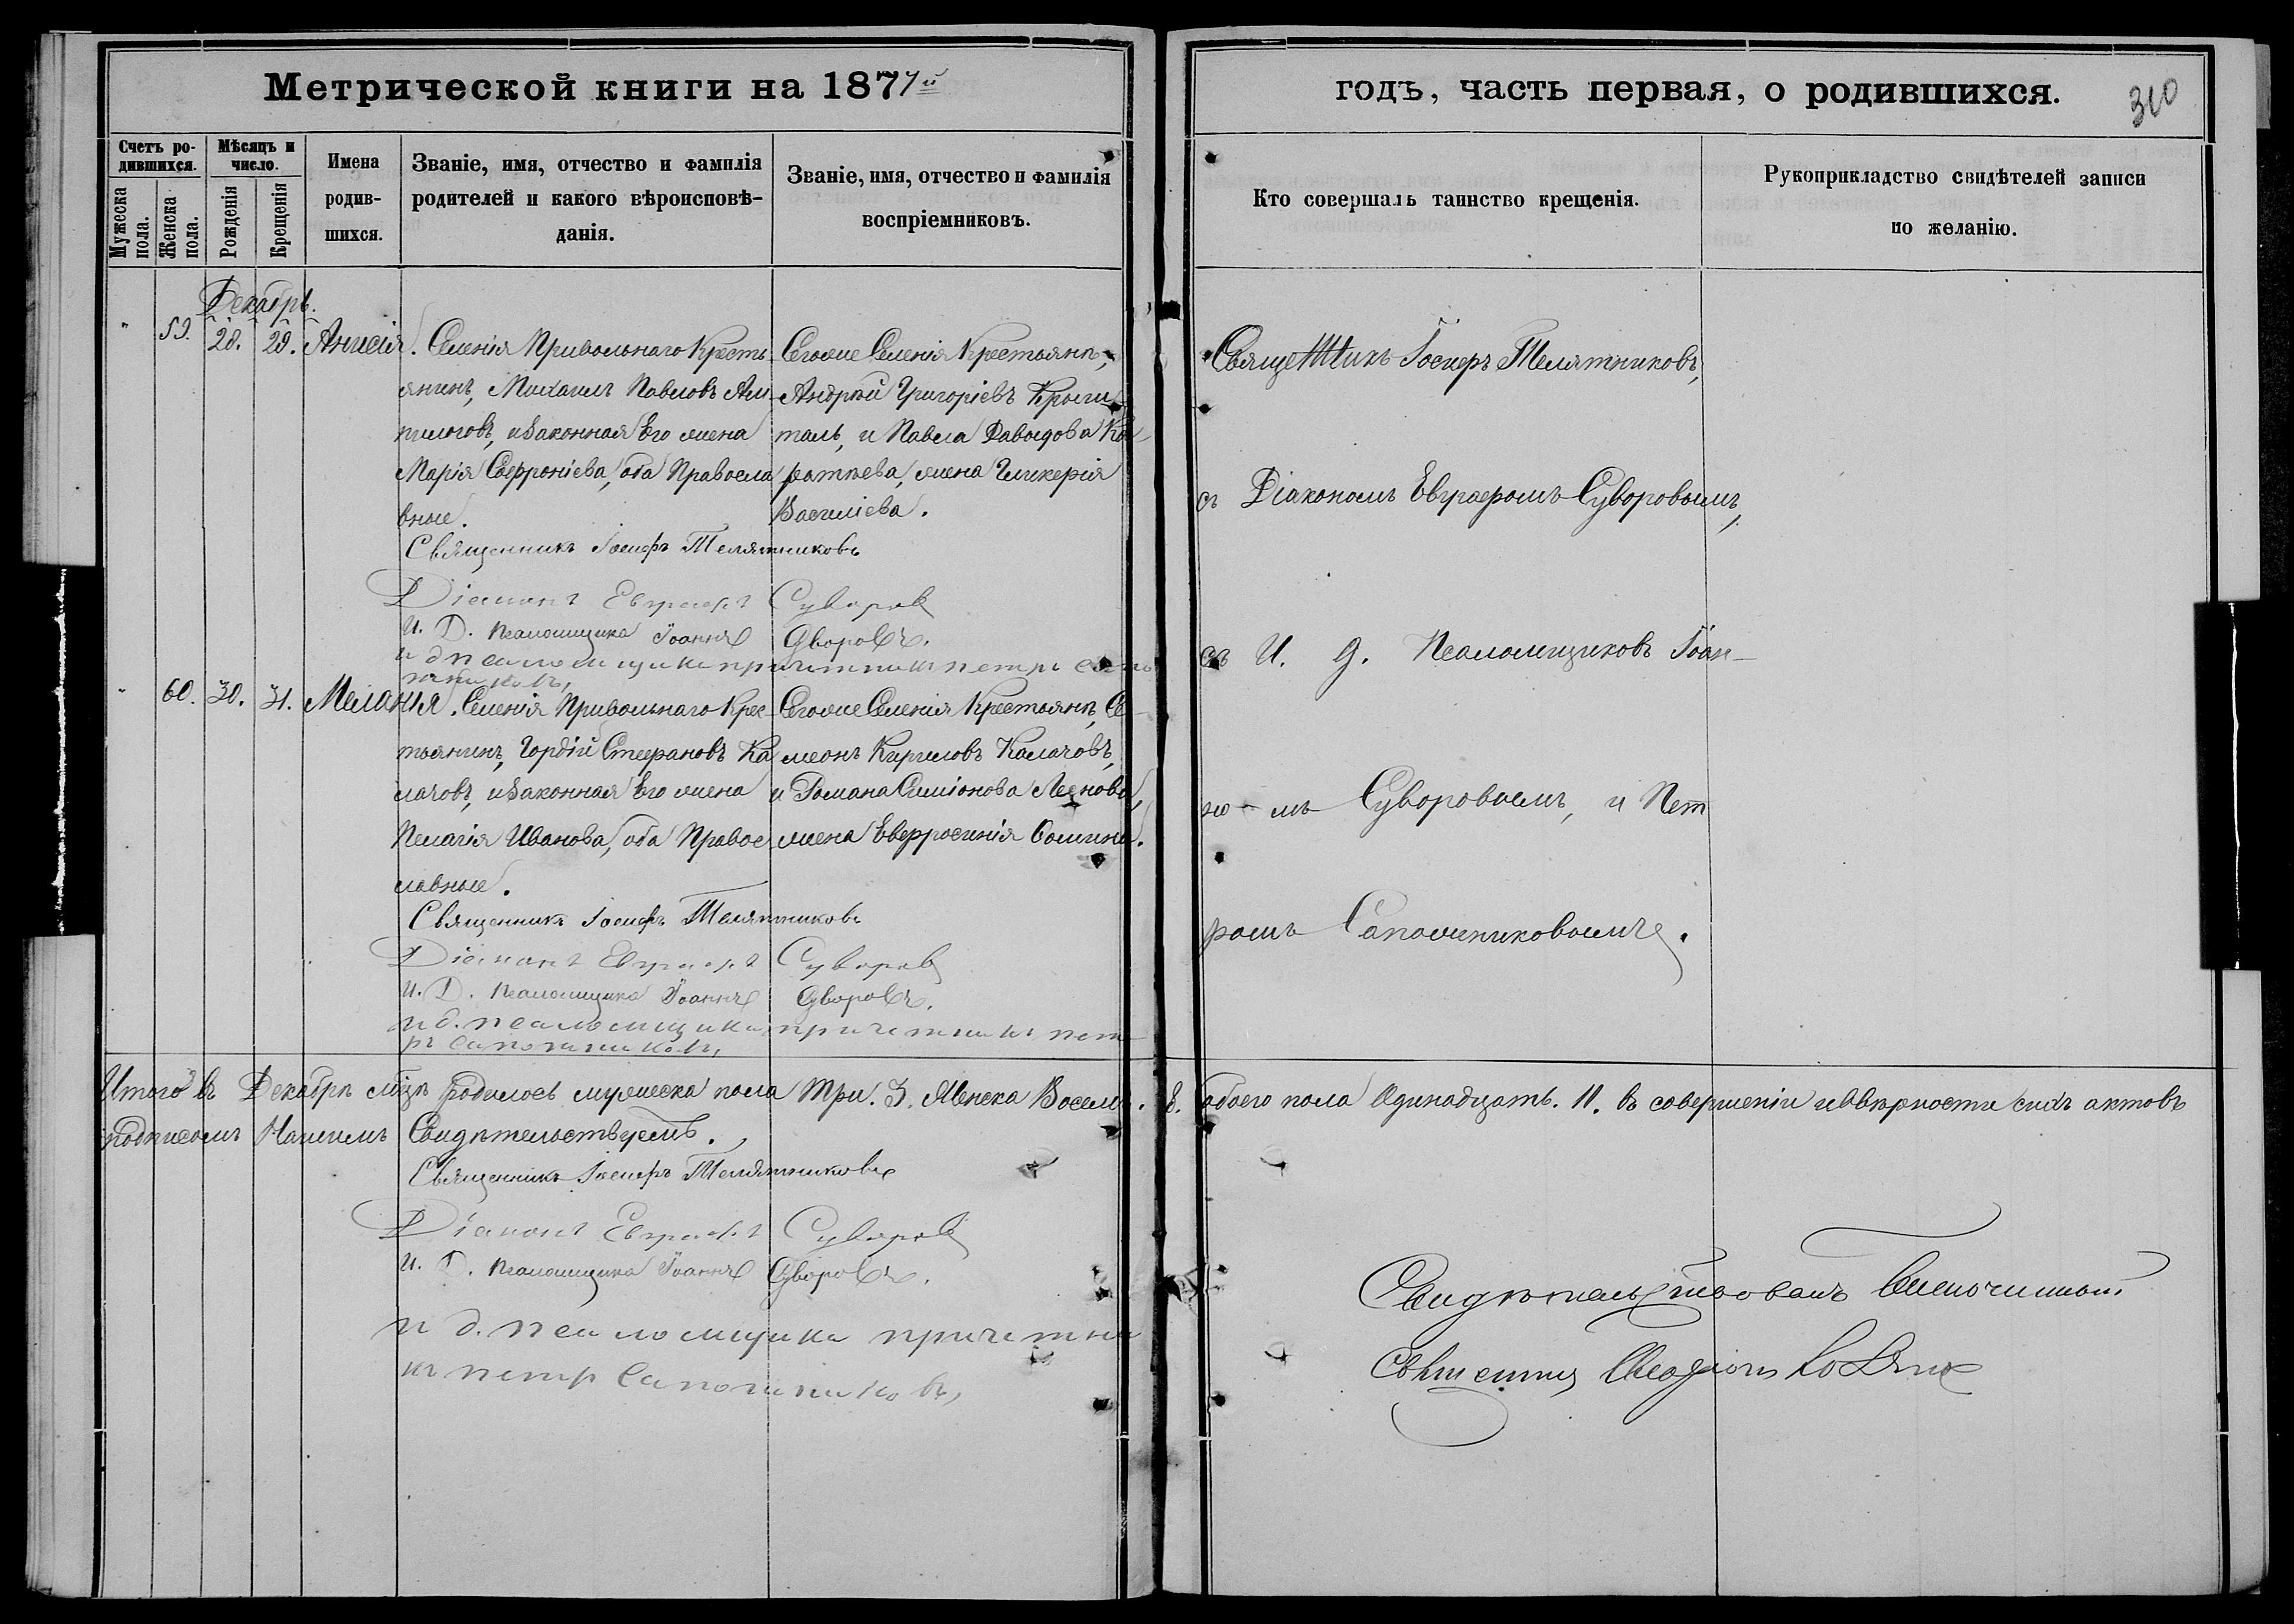 Метрической книги на 1877й
годъ, часть первая, о родившихся.
310
Счетъ ро-
дившихся.
Мужеска пола.
Женска пола.
Мѣсяцъ и
число.
Рожденія
Крещенія
Имена
родив-
шихся.
Званіе, имя, отчество и фамилія
родителей и какого вѣроисповѣ-
данія.
Званіе, имя, отчество и фамилія
воспріемниковъ.
Кто совершалъ таинство крещенія.
Рукоприкладство свидѣтелей записи
по желанію.
Декабрь.
" 59. 28. 29. Анисія.
Селенія Привольнаго Кресть
янинъ, Михаилъ Павловъ
и Законная Его жена
Марія Софроніева, оба Правосла
вные.
Священникъ Іосифъ Телятниковъ
Діаконъ Евграфъ Суворовъ
И. Д. Псаломщика Іоаннъ Суворовъ.
и д псаломщика причетникъ петръ сапо
жниковъ,
Тогоже Селенія Крестьянѣ,
Андрей Григоріевъ
и Павла Давыдова Ко
жена Гликерія
Василіева.
Священникъ Іосифъ Телятниковъ,
съ Діакономъ Евграфомъ Суворовымъ,
съ И. Д. Псаломщиковъ Іоан-
но-мъ Суворовымъ, и Пет
ромъ Сапожниковымъ.
" 60. 30. 31. Меланія.
Селенія Привольнаго Крес
тьянинъ, Гордій Стефановъ Ка
лачовъ, и Законная Его жена
Пелагія Иванова, оба Правос
лавные.
Священникъ Іосифъ Телятниковъ
Діаконъ Евграфъ Суворовъ
И. Д. Псаломщика Іоаннъ Суворовъ.
и д. псаломщика, причетникъ пет
ръ сапожниковъ,
Тогоже Селенія Крестьянѣ, Се
меонъ Кириловъ Калачовъ,
и Романа Симіонова
жена Евфросинія Фомина.
Итого въ Декабрѣ мцѣ родилось мужеска пола Три. 3. Женска Восемь. 8. обоего пола Одинадцать. 11. въ совершеніи и вѣрности сихъ актовъ
подписомъ Нашимъ Свидѣтельствуемъ.
Священникъ Іосифъ Телятниковъ
Діаконъ Евграфъ Суворовъ
И. Д. Псаломщика Іоаннъ Суворовъ.
и д. псаломщика причетни
къ петр Сапожниковъ,
Свидѣтельствовалъ Благочинный